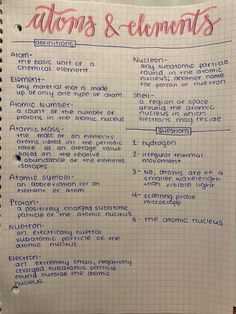 atoms & elements
definitions
Atom-
the basic unit of a
chemical element
Element-
any material that is made
up of only one type of atom.
Atomic Number-
a count or the number of
protons in the atomic nucleus
Atomic Mass-
the mass of an elements
atoms listed in the periodic
table as an average value
based on the relative
abundance of the elements
isotopes
Atomic symbol-
an abbreviation for an
element or atom
Proton-
a positively charged subatomic
particle of the atomic nucleus
Neutron-
an electrically neutral
subatomic particle of the
atomic nucleus
Electron-
an extremely small, negatively
charged subatomic particle
found outside the atomic
nucleus.
Nucleon-
any subatomic particle
found in the atomic
nucleus; another name
for proton or neutron
Shell-
a region or space
around the atomic
nucleus in which
electrons may reside
questions
1- hydrogen
2- irregular thermal
movement
3- No, atoms are of a
smaller wavelength
than visible light
4- scanning probe
microscope
5- the atomic nucleus